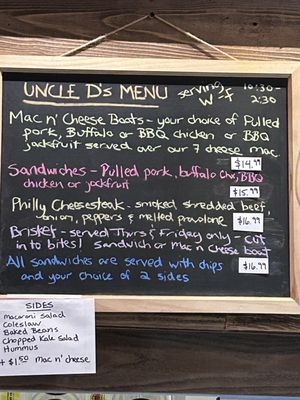 UNCLE D's MENU serving 10:30-
W - F 2:30
Mac n' Cheese Boats - your choice of Pulled
pork, Buffalo or BBQ chicken or BBQ
jackfruit served over our 7 cheese mac
$14.99
Sandwiches - Pulled pork, buffalo chx, BBQ
chicken or jackfruit
$15.99
Philly Cheesesteak - smoked, shredded beef,
onion, peppers & melted provolone $16.99
Brisket - served Thurs & Friday only - cut
in to bites! Sandwich or Mac n Cheese boat
All sandwiches are served with chips $16.99
and your choice of 2 sides
SIDES
macaroni salad
Coleslaw
Baked Beans
Chopped Kale Salad
Hummus
+ $1.50 mac n' cheese